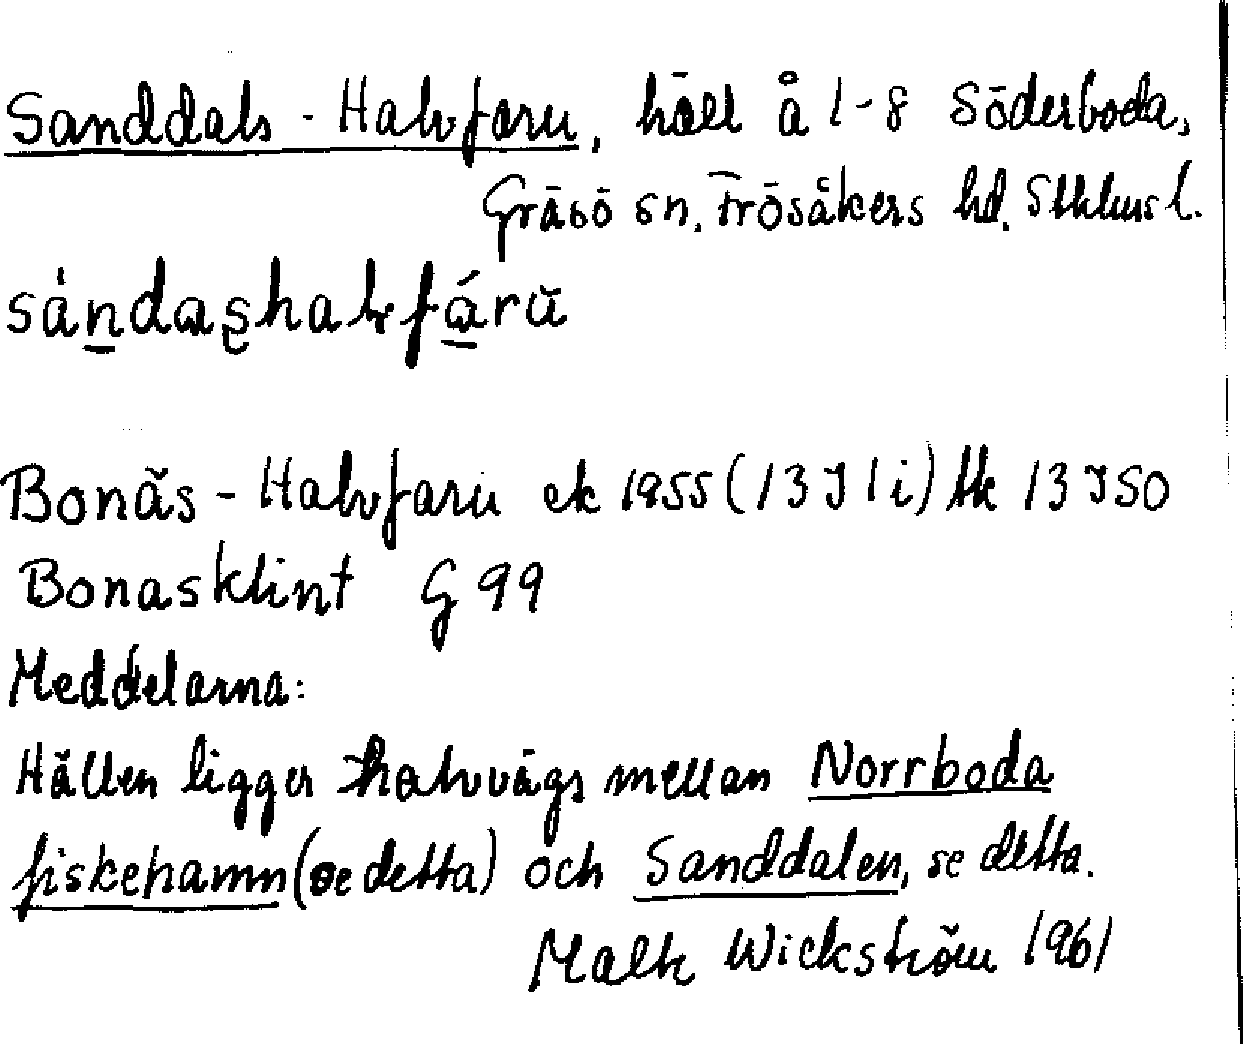 Sanddals-Halvfaru, häll å 1-8 Söderboda,
Gräsö sn. Frösåkers hd. Sthlms l.
sándashalvfárŭ
Bonäs-Halvfaru ek 1955 (13 J 1 i) tk 13 J SO
Bonasklint G 99
Meddelarna:
Hällen ligger halvvägs mellan Norrboda
fiskehamn (se detta) och Sanddalen, se detta.
Wickström 1961